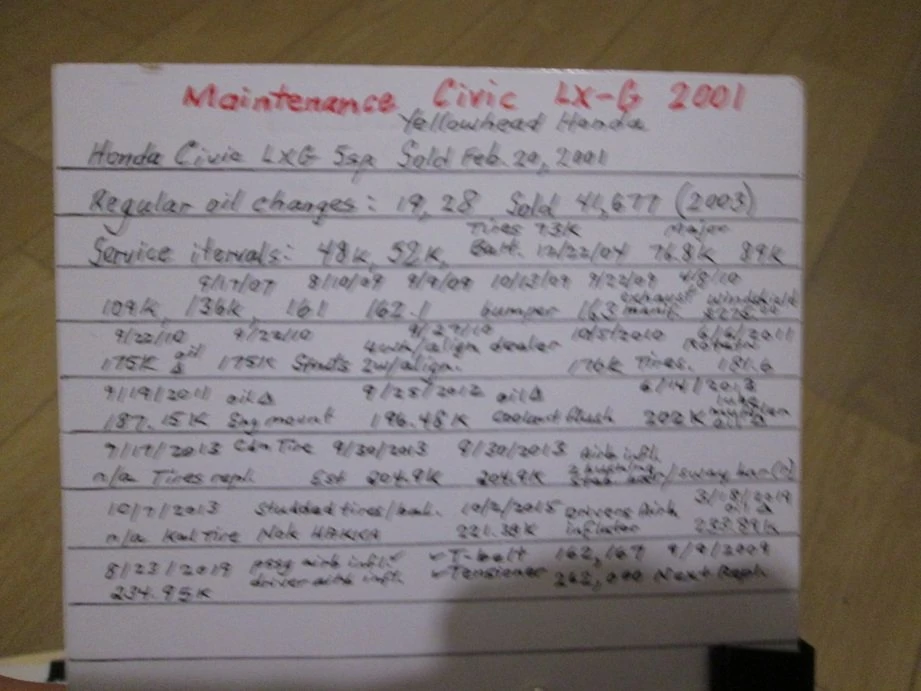 Maintenance Civic LX-G 2001
Yellowhead Honda
Honda Civic LXG 5sp Sold Feb. 20, 2001
Regular oil changes: 19, 28 Sold 41,677 (2003)
Tires 73K Major
Service itervals: 48K, 52K, Batt. 12/22/04 76.8K 89K
9/17/07 8/10/09 9/9/09 10/13/09 4/8/10
109K, 136K, 161 162.1 bumper 163 exhaust manif. windshield
9/22/10 9/22/10 9/27/10 10/5/2010 6/6/2011
4wh/align dealer
175K oil Δ 175K Struts 2w/align. 176K Tires. 181.6
9/19/2011 oil Δ 9/25/2012 oil Δ 6/14/2013
187.15K Eng mount 196.48K Coolant flush 202K oil Δ
7/17/2013 Can Tire 9/30/2013 9/30/2013 airb infl.
n/a Tires repl. Est 204.9K 204.9K 2 bushing /sway bar (2)
10/7/2013 Studded tires/bal. 10/2/2015 Drivers Airb 3/18/2019 oil Δ
n/a Kal Tire Nok HAKKA 221.39K inflator 233.89K
8/23/2019 pssg airb infl. T-belt 162,167 9/9/2009
driver airb infl. Tensioner 262,000 Next Reph
234.95K